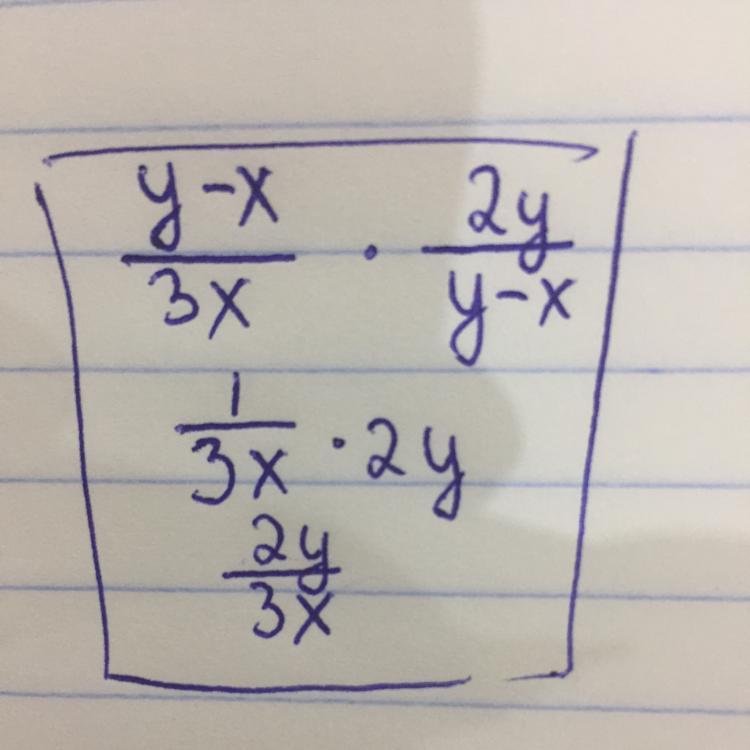 y-x/3x · 2y/y-x
1/3x · 2y
2y/3x